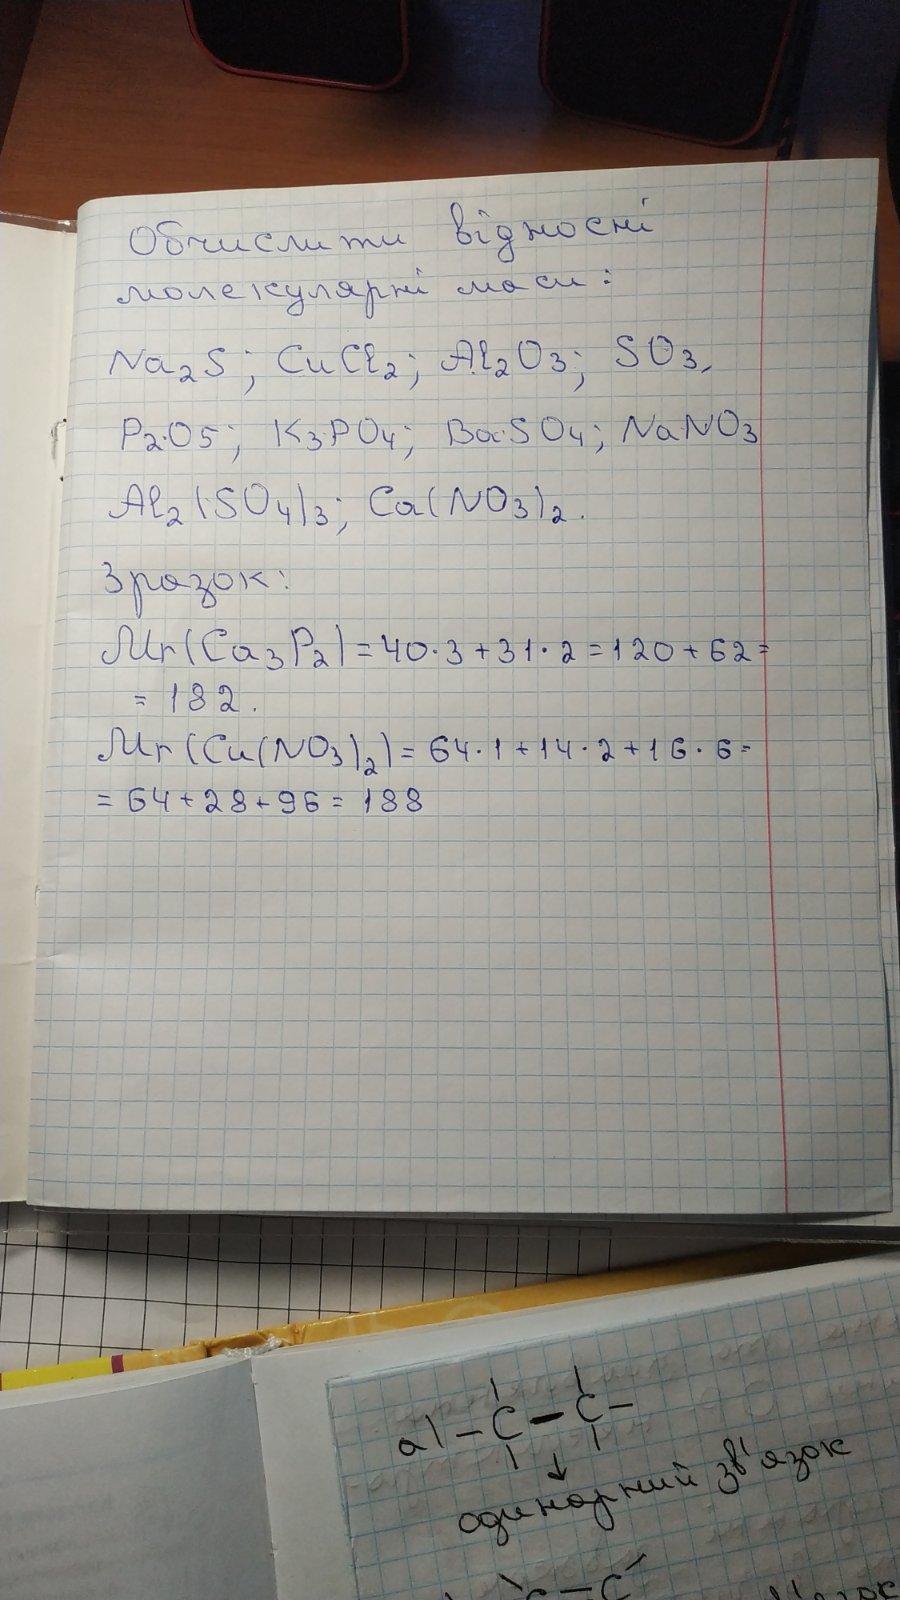 Обчислити відносні
молекулярні маси:
Na₂S; CuCl₂; Al₂O₃; SO₃,
P₂O₅; K₃PO₄; BaSO₄; NaNO₃
Al₂(SO₄)₃; Ca(NO₃)₂.
Зразок:
Mr(Ca₃P₂)=40·3+31·2=120+62=
= 182.
Mr(Cu(NO₃)₂)=64·1+14·2+16·6=
=64+28+96=188
а) –C–C–
одинарний зв'язок
C–C